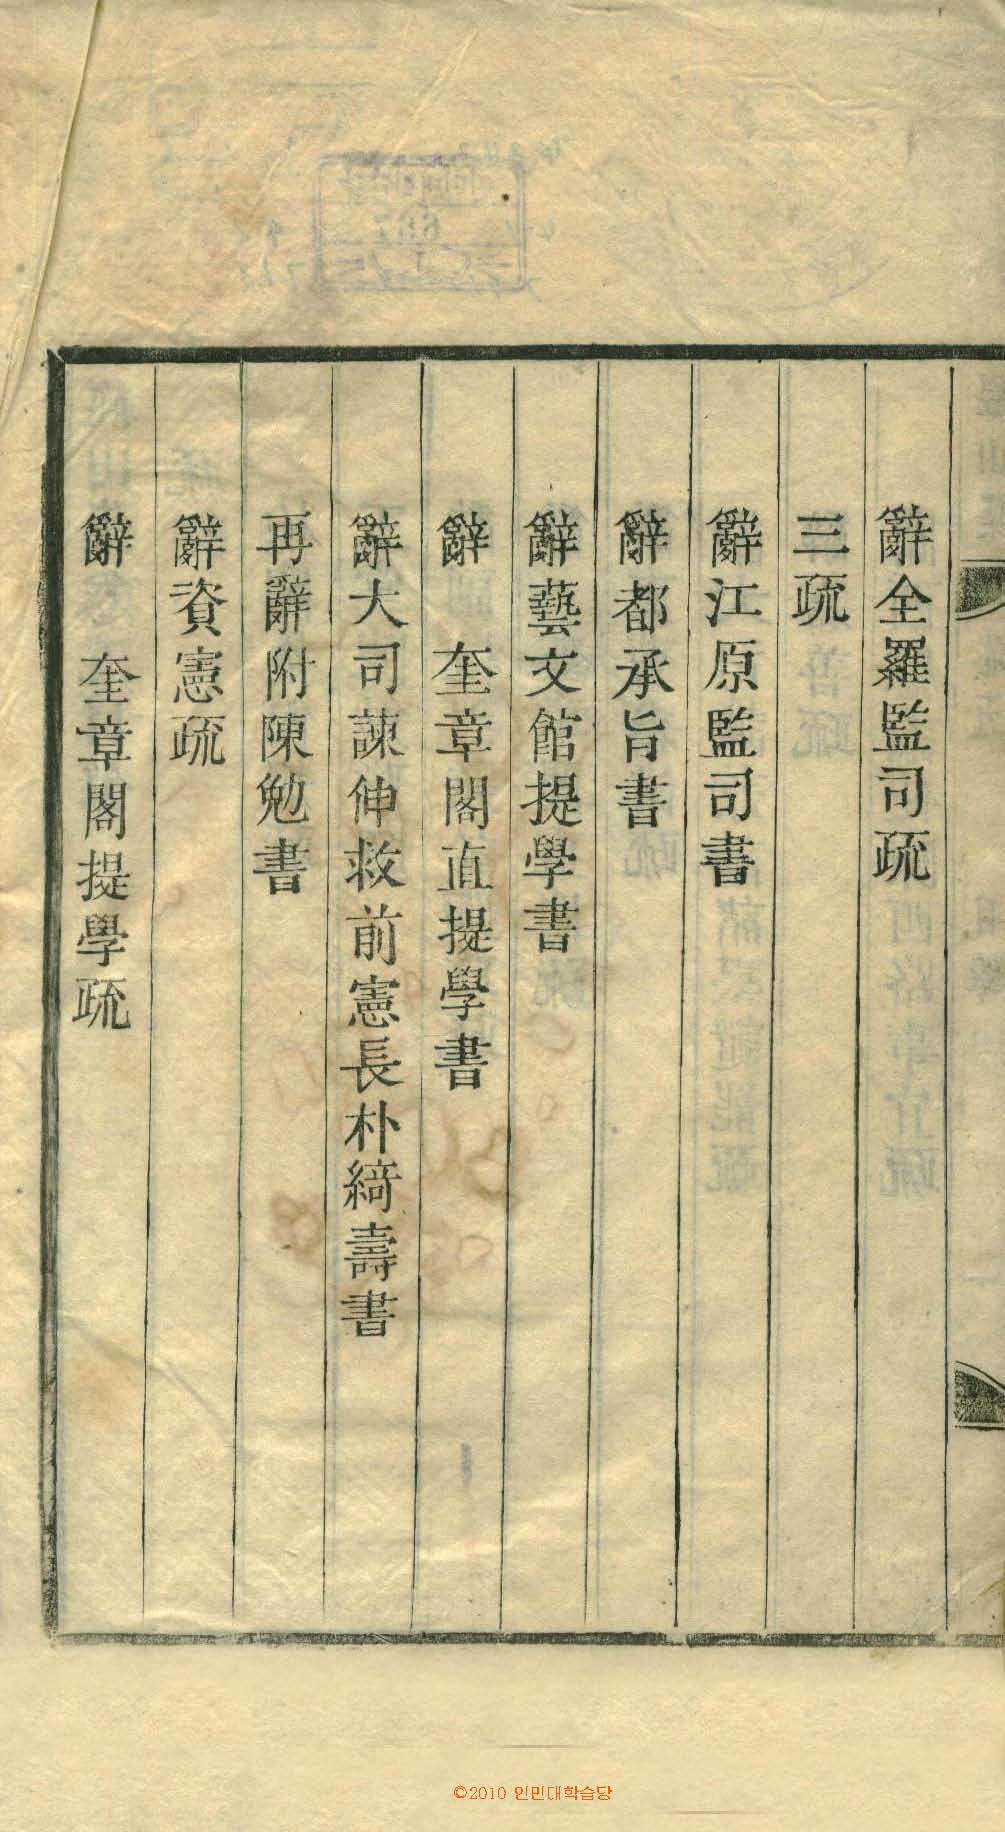 辭全羅監司疏
三疏
辭江原監司書
辭都承旨書
辭藝文館提學書
辭　奎章閣直提學書
辭大司諫伸救前憲長朴綺壽書
再辭附陳勉書
辭資憲疏
辭　奎章閣提學疏
©2010 인민대학습당